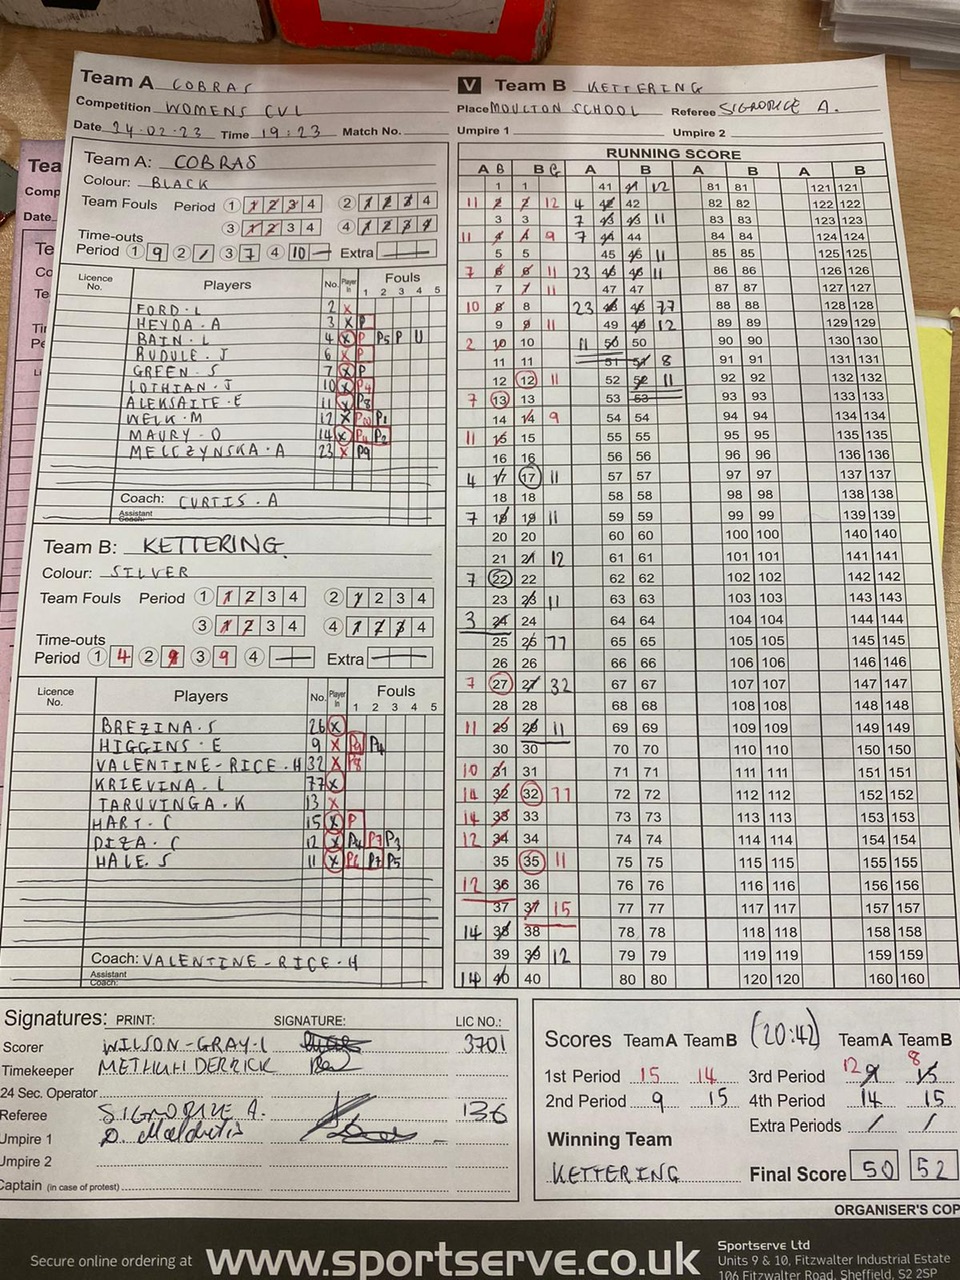 Team A COBRAS
V Team B KETTERING
Competition WOMENS CVL
Place MOULTON SCHOOL Referee SIGNORICE A.
Date 24-02-23 Time 19:23 Match No.
Umpire 1 Umpire 2
Team A: COBRAS
Colour: BLACK
Team Fouls Period 1 1 2 3 4 2 1 2 3 4
3 1 2 3 4 4 1 2 3 4
Time-outs
Period 1 9 2 / 3 7 4 10 — Extra
Licence No. Players No. Player In Fouls 1 2 3 4 5
FORD.L 2 X
HEYDA.A 3 X P
BAIN.L 4 X P P5 P U
RUDULE.J 6 X P
GREEN.S 7 X P
LOTHIAN.J 10 X P4
ALEKSAITE.E 11 X P8
WELK.M 12 X P1
MAURY.O 14 X P2
MELCZYNSKA.A 23 X P9
Coach: CURTIS.A
Assistant Coach:
Team B: KETTERING
Colour: SILVER
Team Fouls Period 1 1 2 3 4 2 1 2 3 4
3 1 2 3 4 4 1 2 3 4
Time-outs
Period 1 4 2 9 3 9 4 — Extra
Licence No. Players No. Player In Fouls 1 2 3 4 5
BREZINA.S 26 X
HIGGINS.E 9 X P4
VALENTINE-RICE.H 32 X P8
KRIEVINA.L 77 X
TARUVINGA.K 13 X
HART.C 15 X P
DIZA.C 12 X P7 P3
HALE.S 11 X P6 P7 P5
Coach: VALENTINE-RICE.H
Assistant Coach:
RUNNING SCORE
A B A B A B A B
1 1 41 41 12 81 81 121 121
11 2 2 12 4 42 42 82 82 122 122
3 3 7 43 43 11 83 83 123 123
11 4 4 9 7 44 44 84 84 124 124
5 5 45 45 11 85 85 125 125
7 6 6 11 23 46 46 11 86 86 126 126
7 7 11 47 47 87 87 127 127
10 8 8 23 48 48 77 88 88 128 128
9 9 11 49 49 12 89 89 129 129
2 10 10 11 50 50 90 90 130 130
11 11 51 51 8 91 91 131 131
12 12 11 52 52 11 92 92 132 132
7 13 13 53 53 93 93 133 133
14 14 9 54 54 94 94 134 134
11 15 15 55 55 95 95 135 135
16 16 56 56 96 96 136 136
4 17 17 11 57 57 97 97 137 137
18 18 58 58 98 98 138 138
7 19 19 11 59 59 99 99 139 139
20 20 60 60 100 100 140 140
21 21 12 61 61 101 101 141 141
7 22 22 62 62 102 102 142 142
23 23 11 63 63 103 103 143 143
3 24 24 64 64 104 104 144 144
25 25 77 65 65 105 105 145 145
26 26 66 66 106 106 146 146
7 27 27 32 67 67 107 107 147 147
28 28 68 68 108 108 148 148
11 29 29 11 69 69 109 109 149 149
30 30 70 70 110 110 150 150
10 31 31 71 71 111 111 151 151
14 32 32 77 72 72 112 112 152 152
14 33 33 73 73 113 113 153 153
12 34 34 74 74 114 114 154 154
35 35 11 75 75 115 115 155 155
12 36 36 76 76 116 116 156 156
37 37 15 77 77 117 117 157 157
14 38 38 78 78 118 118 158 158
39 39 12 79 79 119 119 159 159
14 40 40 80 80 120 120 160 160
Signatures: PRINT: SIGNATURE: LIC NO.:
Scorer WILSON-GRAY.L 3701
Timekeeper METHUH DERRICK
24 Sec. Operator
Referee SIGNORICE A. 136
Umpire 1
Umpire 2
Captain (in case of protest)
Scores Team A Team B (20:42) Team A Team B
1st Period 15 14 3rd Period 12 9 8 15
2nd Period 9 15 4th Period 14 15
Extra Periods / /
Winning Team
KETTERING Final Score 50 52
ORGANISER'S COP
Secure online ordering at www.sportserve.co.uk
Sportserve Ltd
Units 9 & 10, Fitzwalter Industrial Estate
106 Fitzwalter Road, Sheffield, S2 2SP